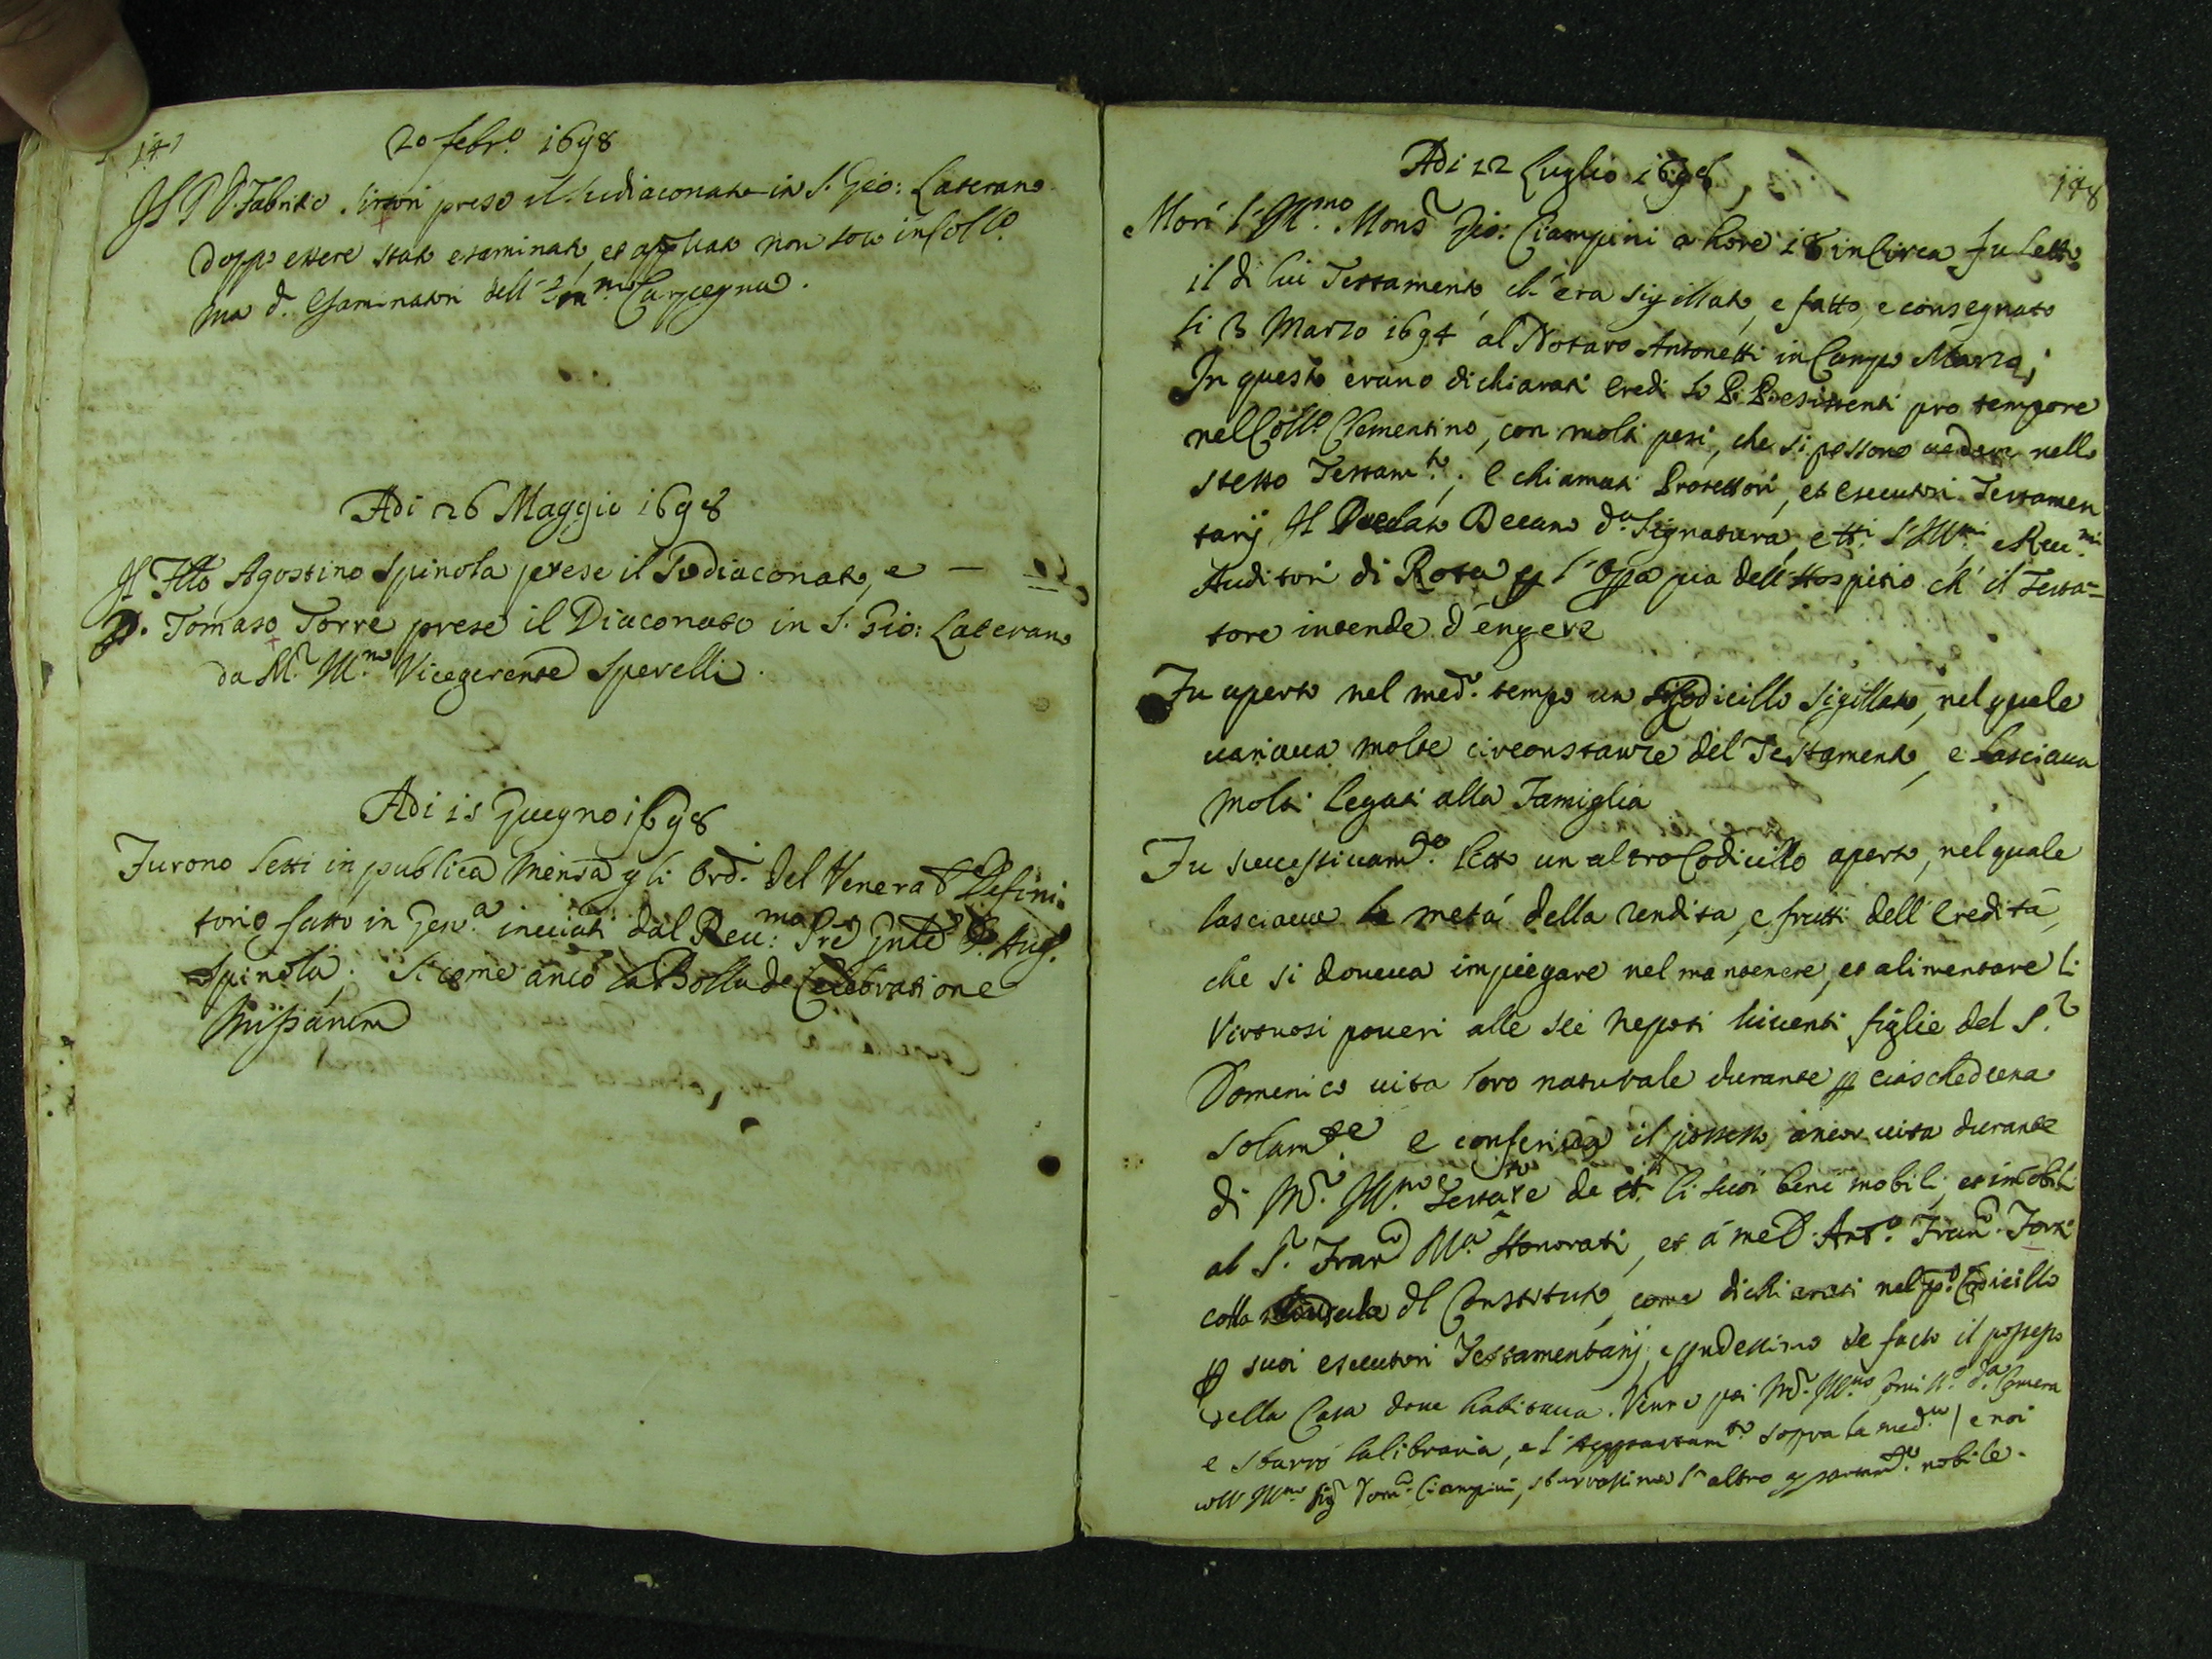 147
20 febr.o 1698
Il P. D. Fabritio Sirtori prese il Sudiaconato in S. Gio: Laterano
doppo essere stato esaminato, et app.to non solo in Coll.o
ma d. Esaminatori dell' Em.mo Carpegna.
Adi 26 Maggio 1698
Il Fllo Agostino Spinola prese il Sudiaconato, e —
D. Tomaso Torre prese il Diaconato in S. Gio: Laterano
da M.r Ill.mo Vicegerente Sperelli.
Adi 15 Giugno 1698
Furono letti in publica Mensa gli Ord. del Venerab. Defini
torio fatto in Gen.a inviati dal Rev.mo Pre Gnle D. Aug.
Spinola; si come anco la Bolla de Celebratione
Missarum
148
Adi 12 Luglio 1698
Morì l'Ill.mo Mons.r Gio: Ciampini a hore 18 in circa fu letto
il di lui Testamento ch'era sigillato, e fatto, e consegnato
li 3 Marzo 1694 al Notaro Antonetti in Campo Marzo;
In questo erano dichiarati eredi li P. P. esistenti pro tempore
nel Coll.o Clementino, con molti pesi, che si possono vedere nello
stesso Testam.to, e chiamati Protettori, et esecutori Testamen
tarij Il Prelato Decano d.a Signatura, et tti l'Ill.mi e Rev.mi
Auditori di Rota p l'Opa pia dell'Hospitio ch' il Testa=
tore intende d'erigere
Fu aperto nel med.o tempo un Codicillo sigillato, nel quale
variava molte circonstanze del Testamento, e lasciava
molti legati alla Famiglia
Fu successivam.te letto un altro Codicillo aperto, nel quale
lasciava la metà della rendita, e frutti dell'eredità,
che si doveva impiegare nel mantenere, et alimentare li
Virtuosi poveri alle sei nepoti viventi figlie del S.r
Domenico vita loro naturale durante p ciascheduna
solam.te e conferiva il possesso ancor vita durante
di M.r Ill.mo Testatore de tti li suoi beni mobili, et imobili
al S.r Fran.o M.a Honorati, et à me D. Ant.o Fran.o Forti
colla clausula del Constituto, come dichiarati nel p.o Codicillo
p suoi esecutori Testamentarij, e prendessimo de facto il possesso
della Casa dove habitava. Venne poi M.r Ill.mo d.a Camera
e sbarrò la libraria, e l'Appartam.to sopra la med.a / e noi
coll' Ill.mo Sig.r Dom.o Ciampini, sbarrassimo l'altro appartam.to nobile.